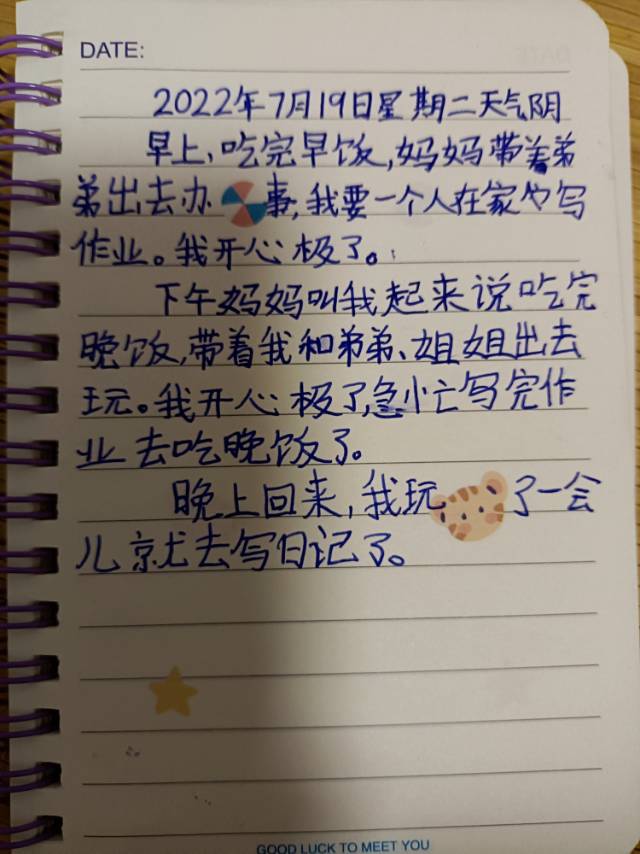 DATE:
2022年7月19日星期二天气阴
早上,吃完早饭,妈妈带着弟
弟出去办事,我要一个人在家写
作业。我开心极了。
下午妈妈叫我起来说吃完
晚饭,带着我和弟弟、姐姐出去
玩。我开心极了,急忙写完作
业去吃晚饭了。
晚上回来,我玩了一会
儿就去写日记了。
GOOD LUCK TO MEET YOU